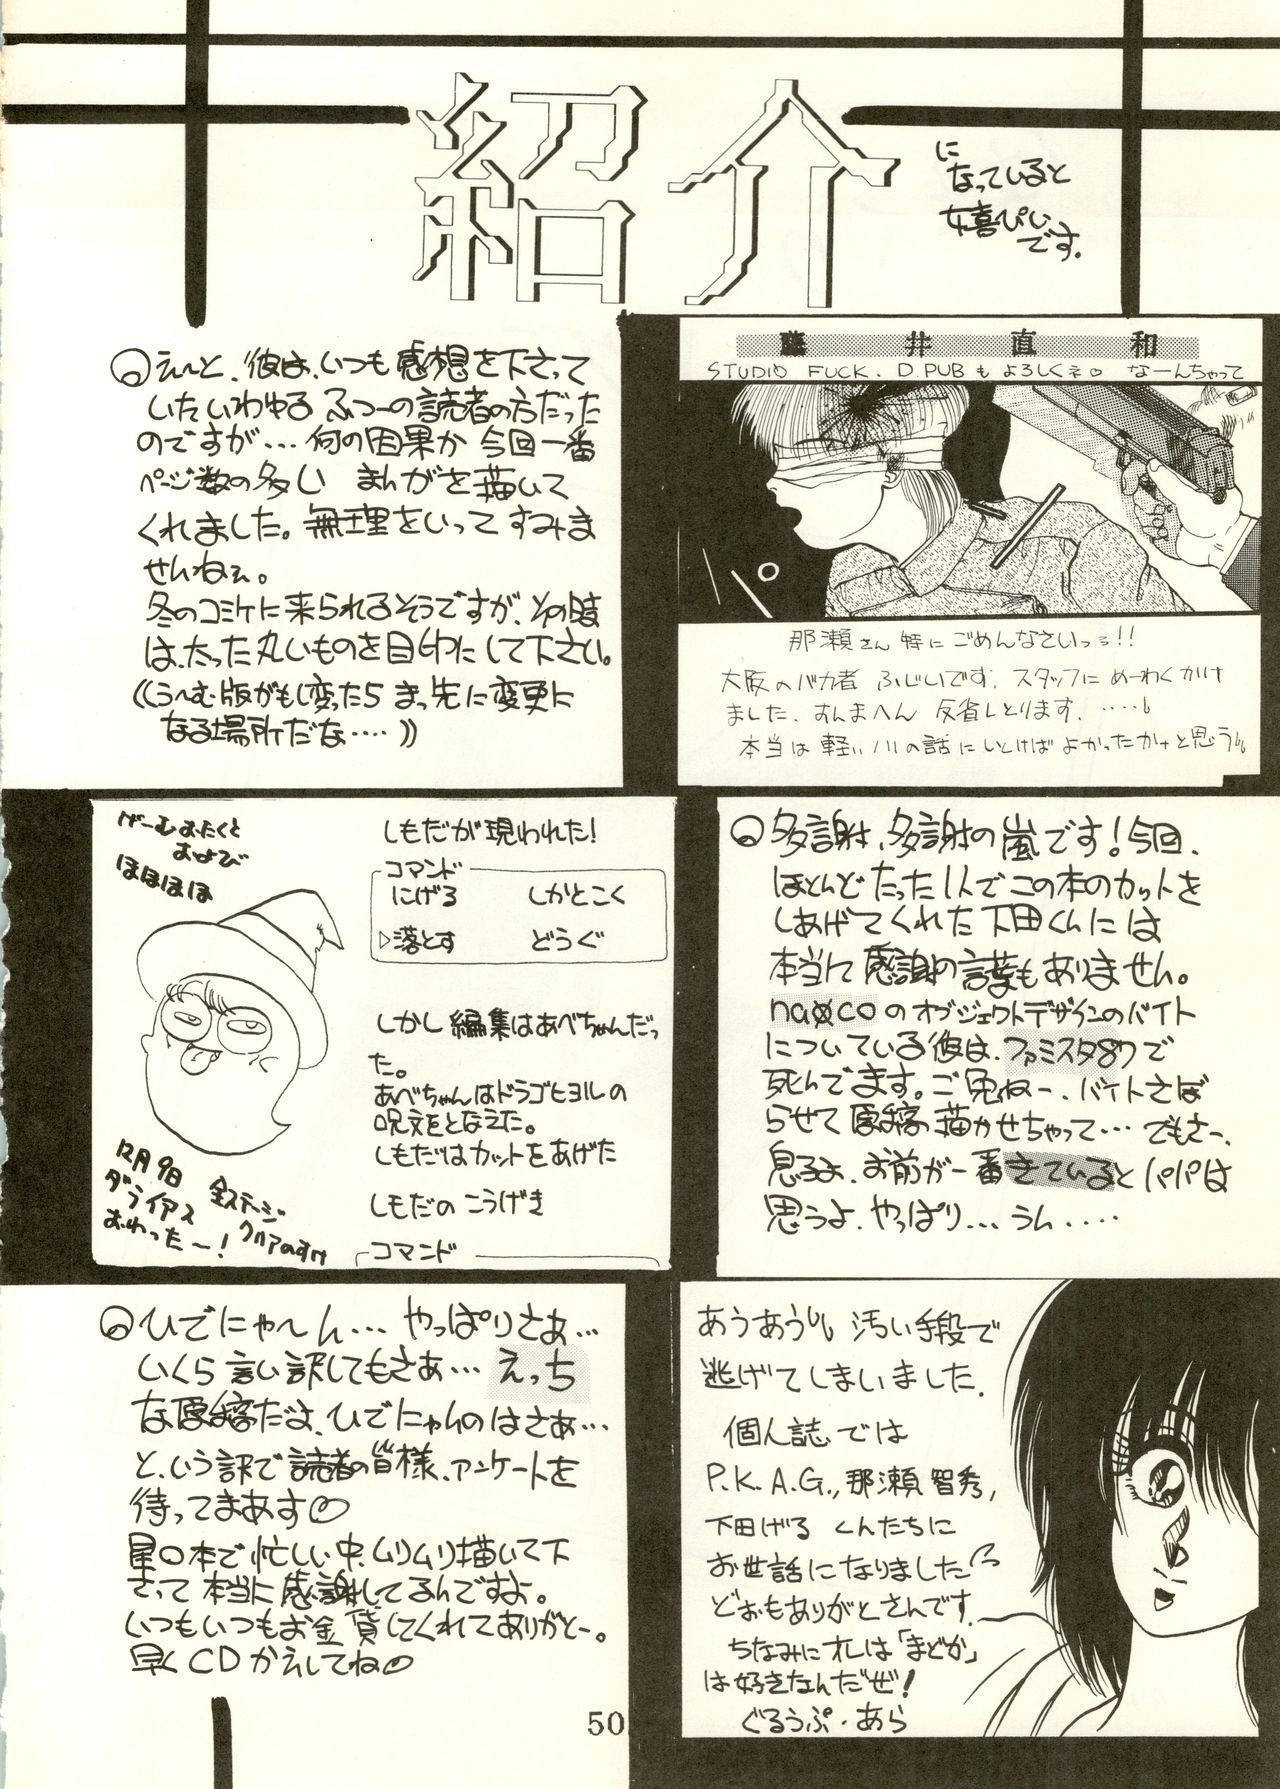 紹介
に
なっていると
嬉ぴい
です.
藤井直和
STUDIO FUCK. D.PUBもよろしくネ。なーんちゃって
えーと、彼は、いつも感想を下さって
いたいわゆるふつーの読者の方だった
のですが…何の因果か今回一番
ページ数の多い まんがを描いて
くれました。無理をいってすみま
せんねェ。
冬のコミケに来られるそうですが、その時
は、たった丸いものを目印にして下さい。
((う〜む版がもし変ったらまっ先に変更に
なる場所だな……))
那瀬さん特にごめんなさいっっ!!
大阪のバカ者 ふじいです. スタッフにめーわくかけ
ました. すんまへん 反省しとります. ……
本当は軽いノリの話にしとけばよかったかナと思う
げーむおたくと
および
ほほほほ
12月9日
ダライアス
全ステージ
クリアのすけ
おわったー!
しもだが現われた!
コマンド
にげる しかとこく
▷落とす どうぐ
しかし編集はあべちゃんだっ
た。
あべちゃんはドラゴヒヨルの
呪文をとなえた。
しもだはカットをあげた
しもだの こうげき
コマンド
多謝、多謝の嵐です!今回、
ほとんどたった1人でこの本のカットを
しあげてくれた下田くんには
本当に感謝の言葉もありません。
na×coのオブジェクトデザインのバイト
についている彼は、ファミスタ87で
死んでます。ご免ねー、バイトさぼ
らせて原稿描かせちゃって…でもさー、
息子よ、お前が一番きているとパパは
思うよ、やっぱり…うん‥‥
ひでにゃ〜ん… やっぱりさぁ…
いくら言い訳してもさぁ… えっち
な原稿だよ、ひでにゃんのはさぁ…
と、いう訳で読者の皆様、アンケートを
待ってまあす
星〇本で忙しい中、ムリムリ描いて下
さって本当に感謝してるんですよ。
いつもいつもお金貸してくれてありがとー。
早くCDかえしてね
あうあう 汚い手段で
逃げてしまいました.
個人誌では
P.K.A.G., 那瀬智秀,
下田げる くんたちに
お世話になりました
どおもありがとさんです.
ちなみにオレは「まどか」
は好きなんだぜ!
ぐるうぷ・あら
50